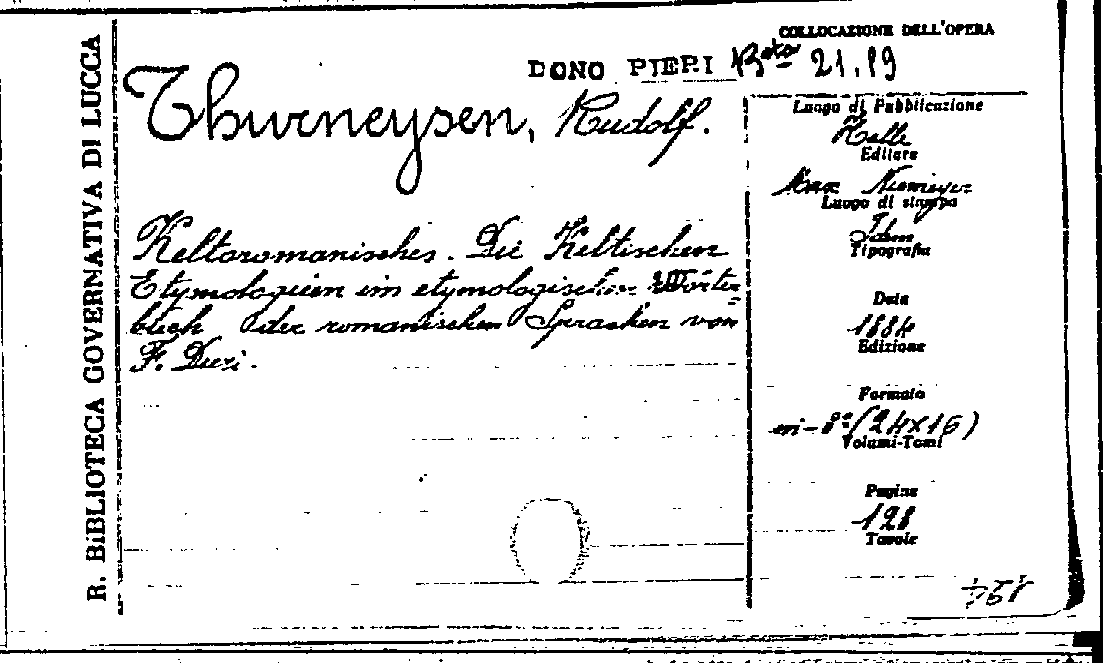 R. BIBLIOTECA GOVERNATIVA DI LUCCA
COLLOCAZIONE DELL'OPERA
DONO PIERI Bta 21.19
Thurneysen, Rudolf.
Keltoromanisches. Die Keltischen
Etymologieen im etymologischen Wörter
buch der romanischen Sprachen von
F. Diez.
Luogo di Pubblicazione
Halle
Editore
Max Niemeyer
Luogo di stampa
Tipografia
Data
1884
Edizione
Formato
in-8º (24x16)
Volumi-Tomi
Pagine
128
Tavole